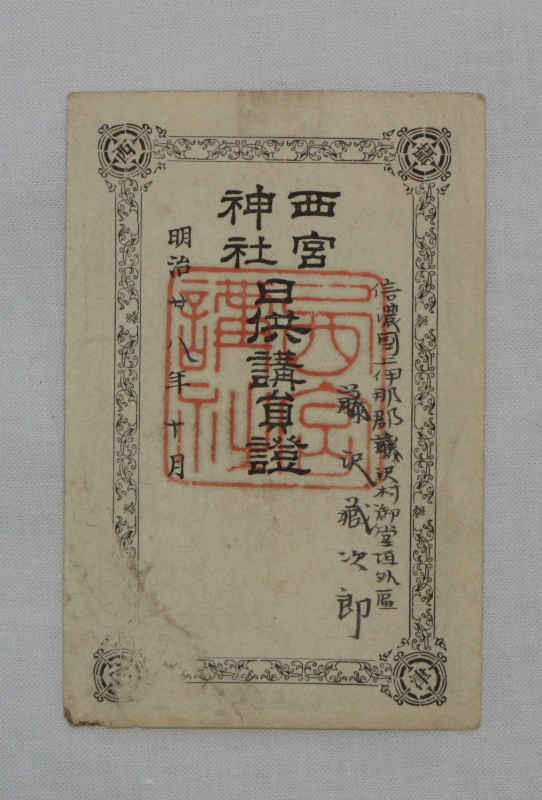 西宮
神社
日供講員證
信濃國上伊那郡藤沢村御堂垣外區
藤沢藏次郎
明治廿八年十月
西宮
講社
西